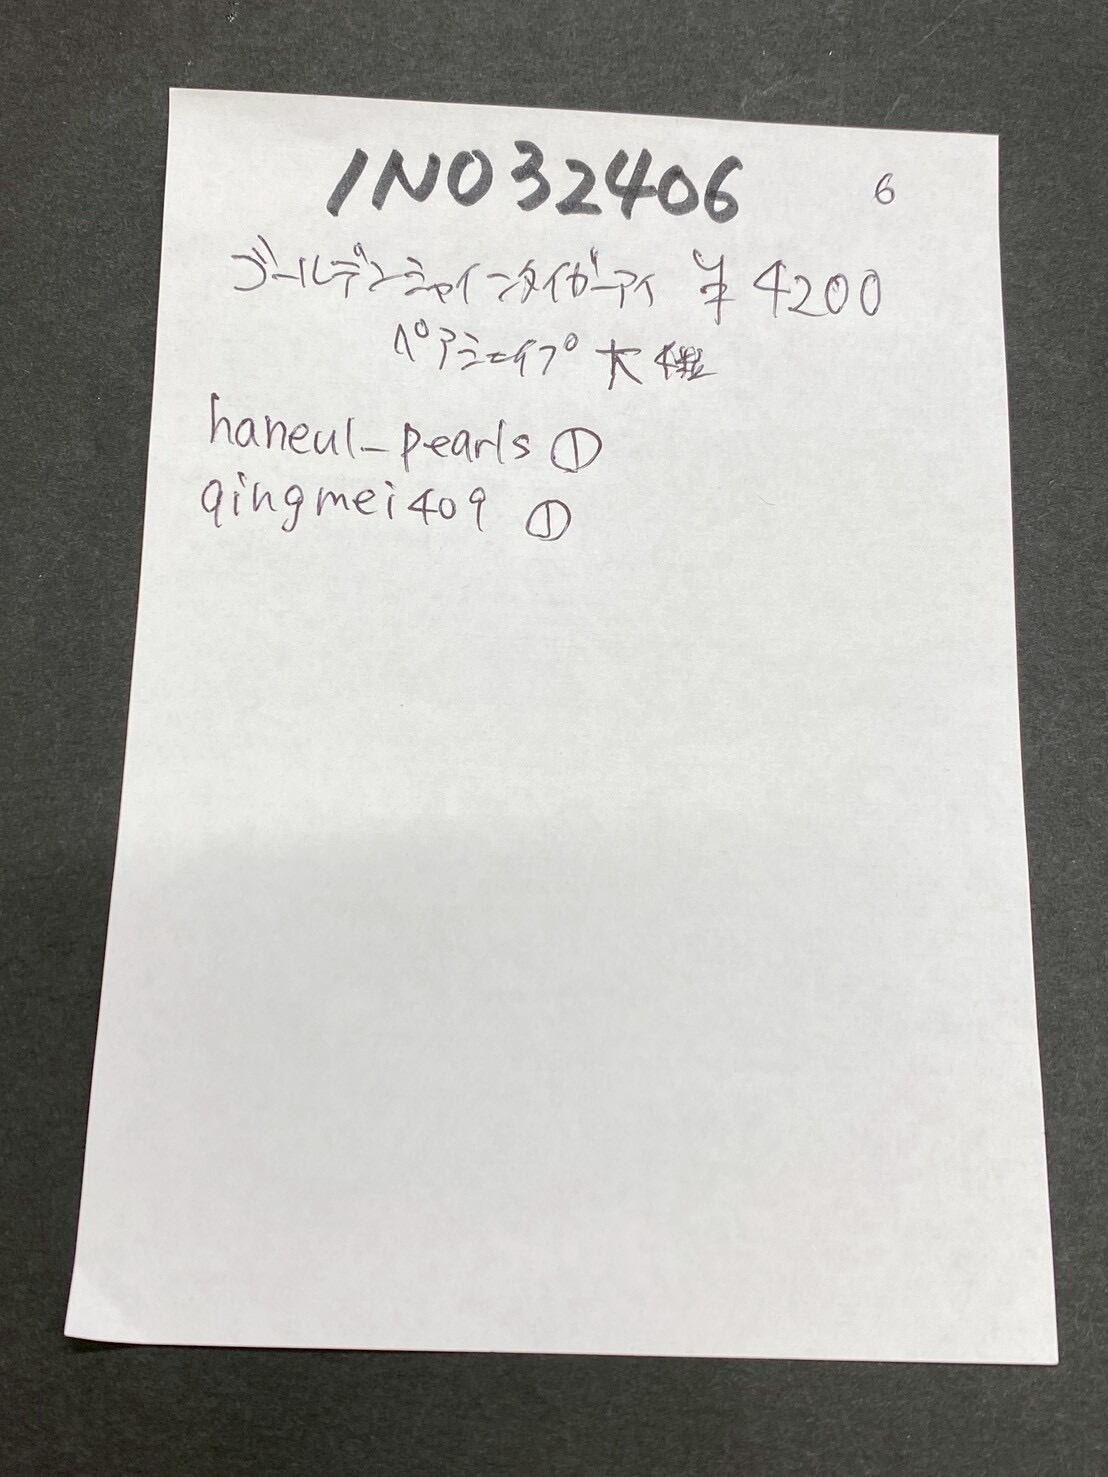 INO32406 6
ゴールデンシャインタイガーアイ ¥4200
ペアシェイプ 大
haneul_pearls ①
qingmei409 ①